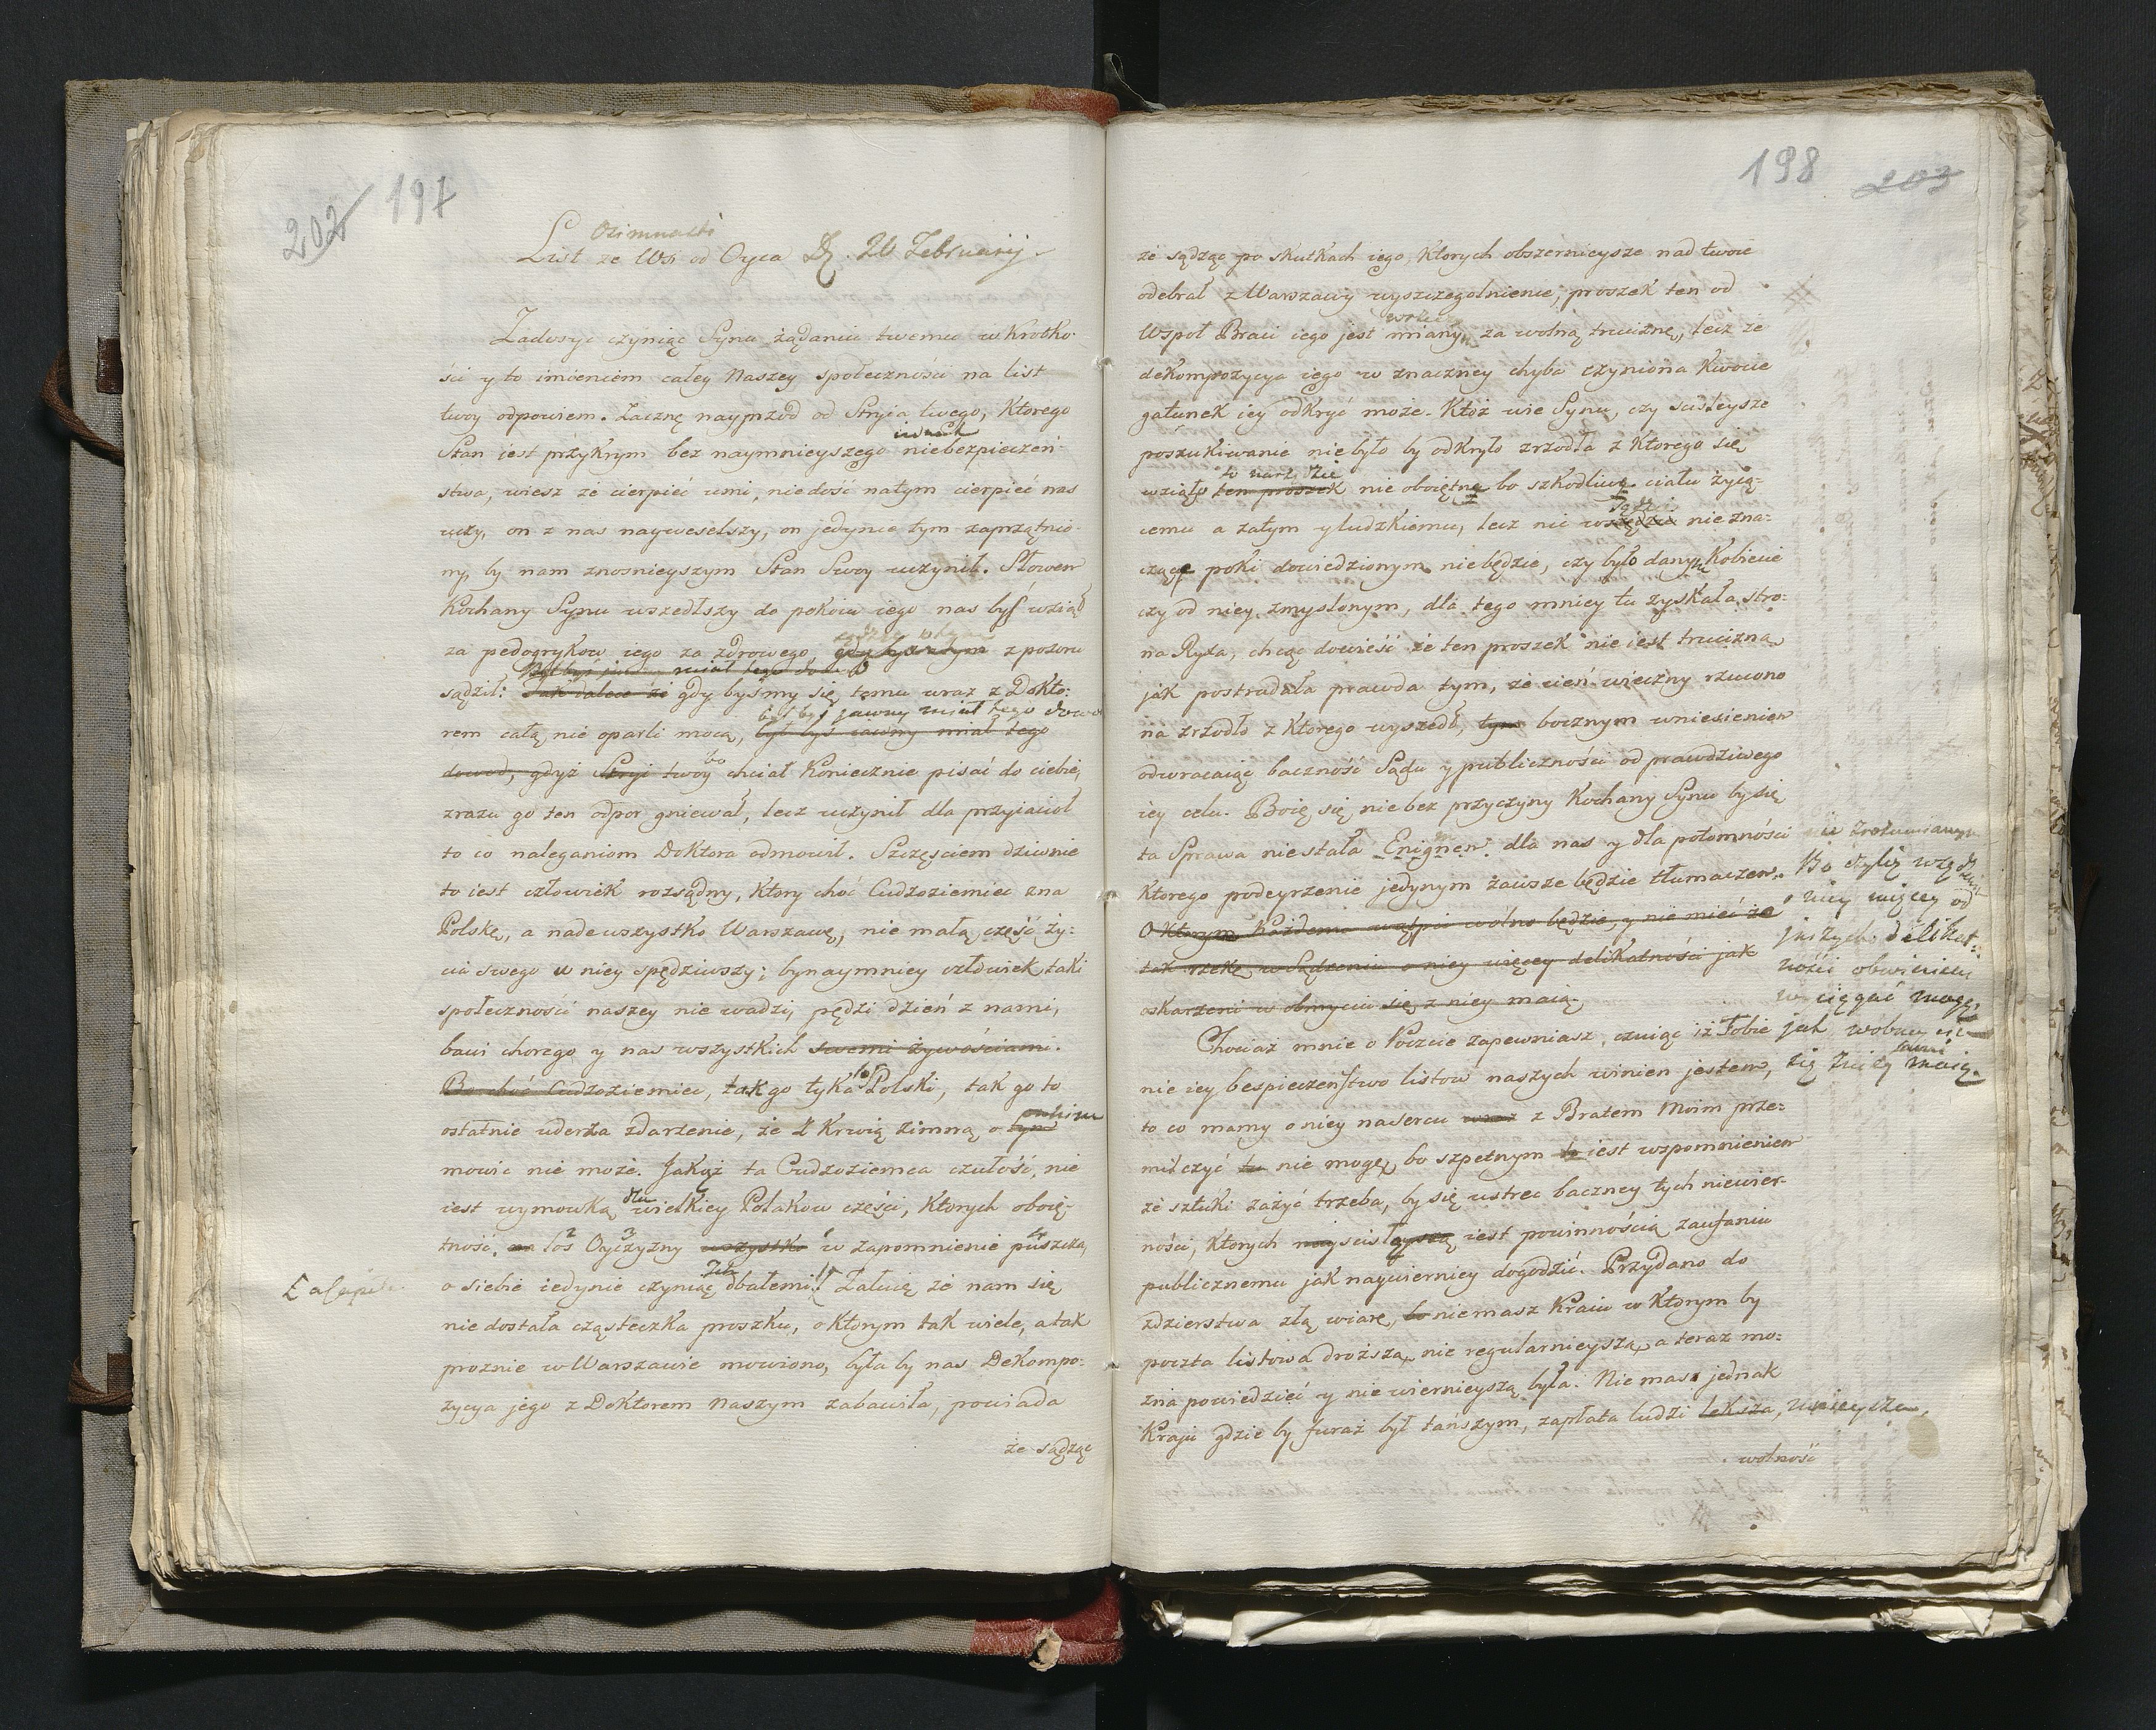 202 197
Osimnasti
List ze Wsi od Oyca D. 20 Februarij.
Zadosyć czyniąc Synu żądaniu twemu w krotko-
ści y to imieniem całey Naszey społeczności na list
twoy odpowiem. Zacznę nayprzod od Stryia twego, Ktorego
Stan iest przykrym bez naymnieyszego niebezpieczeń-
stwa, wiesz że cierpieć umi, niedość natym cierpieć nas
uczy, on z nas nayweselszy, on jedynie tym zaprzątnio-
ny, by nam znosnieyszym Stan Swoy uczynił. Słowem
Kochany Synu wszedłszy do pokoiu iego nas byś wziął
za pedogrykow iego za zdrowego, z pozoru
sądził: Tak dalece że gdy bysmy się temu wraz z Dokto:
był byś jawny miał tego dowod
rem całą nie oparli mocą, był byś iawny miał tego
dowod, gdyż Stryi twoy bo chciał Koniecznie pisać do ciebie,
zrazu go ten odpor gniewał, lecz uczynił dla przyiacioł
to co naleganiom Doktora odmowił. Szczęsciem dziwnie
to iest człowiek rozsądny, Ktory choć Cudzoziemiec zna
Polskę, a nadewszystko Warszawę, nie małą część ży:
cia swego w niey spędziwszy; bynaymniey człowiek taki
społeczności naszey nie wadzi, pędzi dzień z nami,
bawi chorego y nas wszystkich swemi żywościami.
Bo choć Cudzoziemiec, tak go tyka los Polski, tak go to
ostatnie uderza zdarzenie, że z Krwią zimną o tym
mowic nie może. Jakąż ta Cudzoziemca czułość, nie
iest wymowką dla wielkiey Polakow części, Ktorych oboię-
tność, na los Oyczyzny wszystko w zapomnienie puszcza,
o siebie iedynie czyniąc dbałemi! Załuię że nam się
niedostała cząsteczka proszku, o Ktorym tak wiele, a tak
proznie w Warszawie mowiono, była by nas Dekompo-
zycya jego z Doktorem Naszym zabawiła, powiada
że sądząc
198 203
że sądząc po skutkach iego, Ktorych obszernieysze nad twoie
odebrał z Warszawy wyszczegolnienie, proszek ten od
Wspoł Braci iego jest miany za wolną truciznę, lecz że
dekompozycya iego w znaczney chyba czyniona Kwocie
gatunek iey odkryć może. Ktoż wie Synu, czy scisleysze
poszukiwanie niebyło by odkryło zrzodła z Ktorego się
to narzędzie
wzięło ten proszek nie oboiętne bo szkodliwe ciału żyią-
cemu a zatym y ludzkiemu, lecz nic nie zna:
czące poki dowiedzionym niebędzie, czy było danym Kobiecie
czy od niey zmyslonym, dla tego mniey tu zyskała stro:
na Ryxa, chcąc dowieść że ten proszek nie iest trucizną
jak postradała prawda tym, że cień wieczny rzucono
na zrzodło z Ktorego wyszedł, tym bocznym wniesieniem
odwracaiąc baczność Sądu y publiczności od prawdziwego
iey celu. Boię się nie bez przyczyny Kochany Synu by się
ta Sprawa niestała Enigmem dla nas y dla potomności nie zrozumianym
Ktorego podeyrzenie jedynym zawsze będzie tłumaczem.
O Ktorym Każdemu wątpić wolno będzie, y nie mieć że
tak rzekę w Sądzeniu o niey więcey delikatności jak
oskarzeni w obmyciu się z niey maią.
Bo czyliż
o niey więcey od
jnszych delikat:
ności obwinieni
wciągać mogą,
jak
się z niey sami maią.
Chociaż mnie o Poczcie zapewniasz, czuiąc iż Tobie
nie iey bespieczeństwo listow naszych winien jestem,
to co mamy o niey nasercu wraz z Bratem Moim prze-
milczyć tu nie mogę, bo szpetnym to iest wspomnieniem
że sztuki zażyć trzeba, by się ustrzec baczney tych niewier-
ności, Ktorych iest powinnością zaufaniu
publicznemu jak naywierniey dogodzić. Przydano do
zdzierstwa złą wiarę, bo niemasz Kraiu w Ktorym by
poczta listowa droższa, nie regularnieyszą, a teraz mo:
żna powiedzieć y nie wiernieyszą była. Nie masz jednak
Kraju gdzie by furaż był tańszym, zapłata ludzi lekszą, mnieysza,
wolność